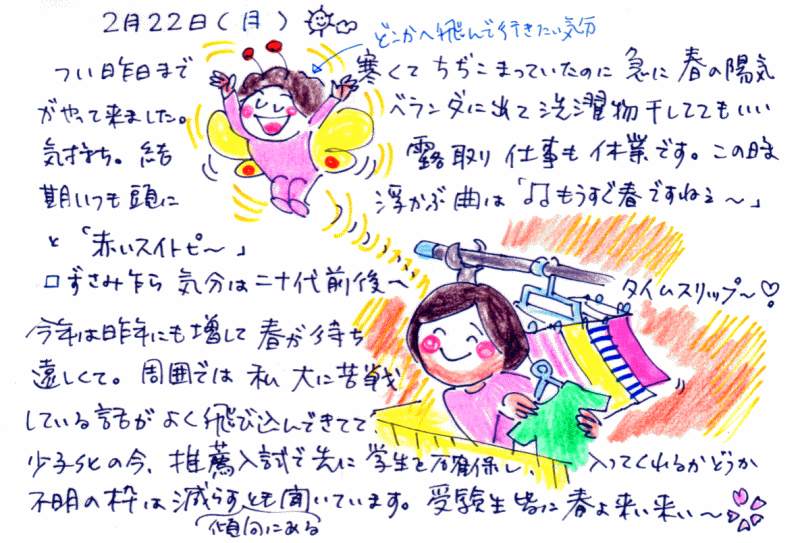 2月22日(月)
どこかへ飛んで行きたい気分
つい昨日まで 寒くて ちぢこまっていたのに 急に 春の陽気
がやって来ました。 ベランダに出て 洗濯物 干しててもいい
気持ち。結 露取り 仕事も 休業です。この時
期いつも頭に 浮かぶ曲は「♫もうすぐ春ですねぇ～」
と「赤いスイトピ～」
口ずさみ乍ら 気分は二十代前後へ タイムスリップ～♡
今年は昨年にも増して 春が待ち
遠しくて。周囲では 私大に苦戦
している話が よく飛び込んできてて、
少子化の今、推薦入試で先に 学生を確保し、 入ってくれるかどうか
不明の枠は 減らすとも聞いています。受験生皆に 春よ来い来い～
傾向にある